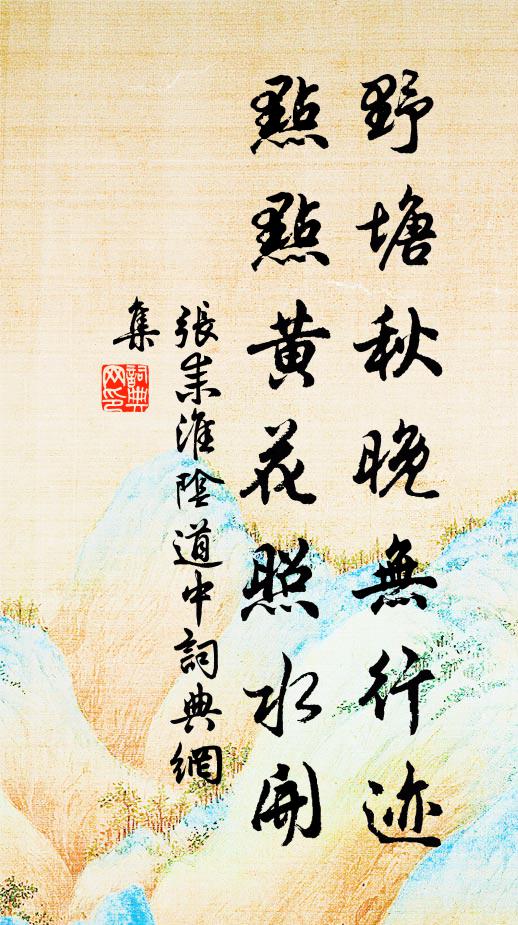 野塘秋晚無行迹
點點黄花照水開
張耒淮陰道中詞典網
集
詞典
网印